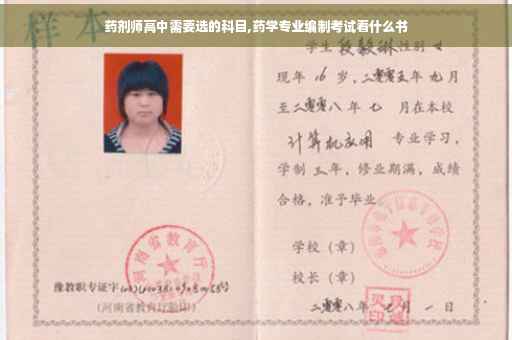 药剂师高中需要选的科目,药学专业编制考试看什么书
样本
学生段毅琳性别女
现年16岁,二零零五年九月
至二零零八年七月在本校
计算机应用 专业学习,
学制三年,修业期满,成绩
合格,准予毕业
学校(章)
校长(章)
二零零八年七月一日
河南省教育厅
豫教职专证字
(河南省教育厅验印)